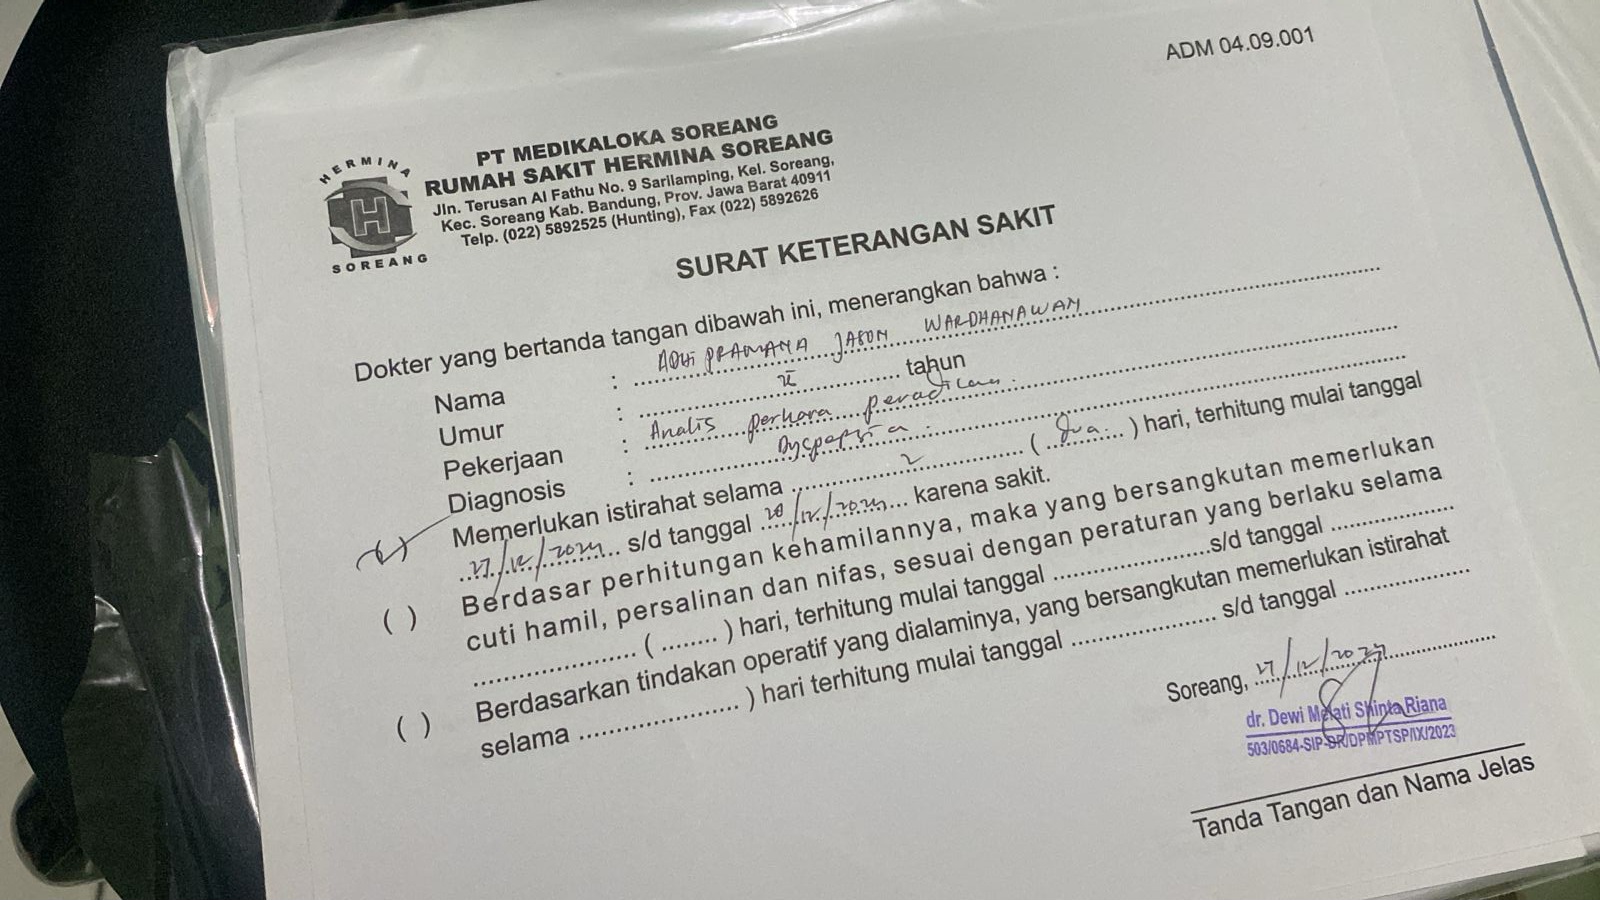 ADM 04.09.001
HERMINA
H
SOREANG
PT MEDIKALOKA SOREANG
RUMAH SAKIT HERMINA SOREANG
Jln. Terusan Al Fathu No. 9 Sarilamping, Kel. Soreang,
Kec. Soreang Kab. Bandung, Prov. Jawa Barat 40911
Telp. (022) 5892525 (Hunting), Fax (022) 5892626
SURAT KETERANGAN SAKIT
Dokter yang bertanda tangan dibawah ini, menerangkan bahwa :
Nama : ADHI PRAMANA JASON WARDHANAWAN
Umur : ........ tahun
Pekerjaan : Analis perkara peradilan.
Diagnosis : Dyspepsia.
Memerlukan istirahat selama 2 (dua) hari, terhitung mulai tanggal
27/12/2024 s/d tanggal 28/12/2024 karena sakit.
( ) Berdasar perhitungan kehamilannya, maka yang bersangkutan memerlukan
cuti hamil, persalinan dan nifas, sesuai dengan peraturan yang berlaku selama
........ ( ........ ) hari, terhitung mulai tanggal ........ s/d tanggal ........
( ) Berdasarkan tindakan operatif yang dialaminya, yang bersangkutan memerlukan istirahat
selama ........ ) hari terhitung mulai tanggal ........ s/d tanggal ........
Soreang, 27/12/2024
dr. Dewi Melati Shinta Riana
503/0684-SIP-DR/DPMPTSP/IX/2023
Tanda Tangan dan Nama Jelas